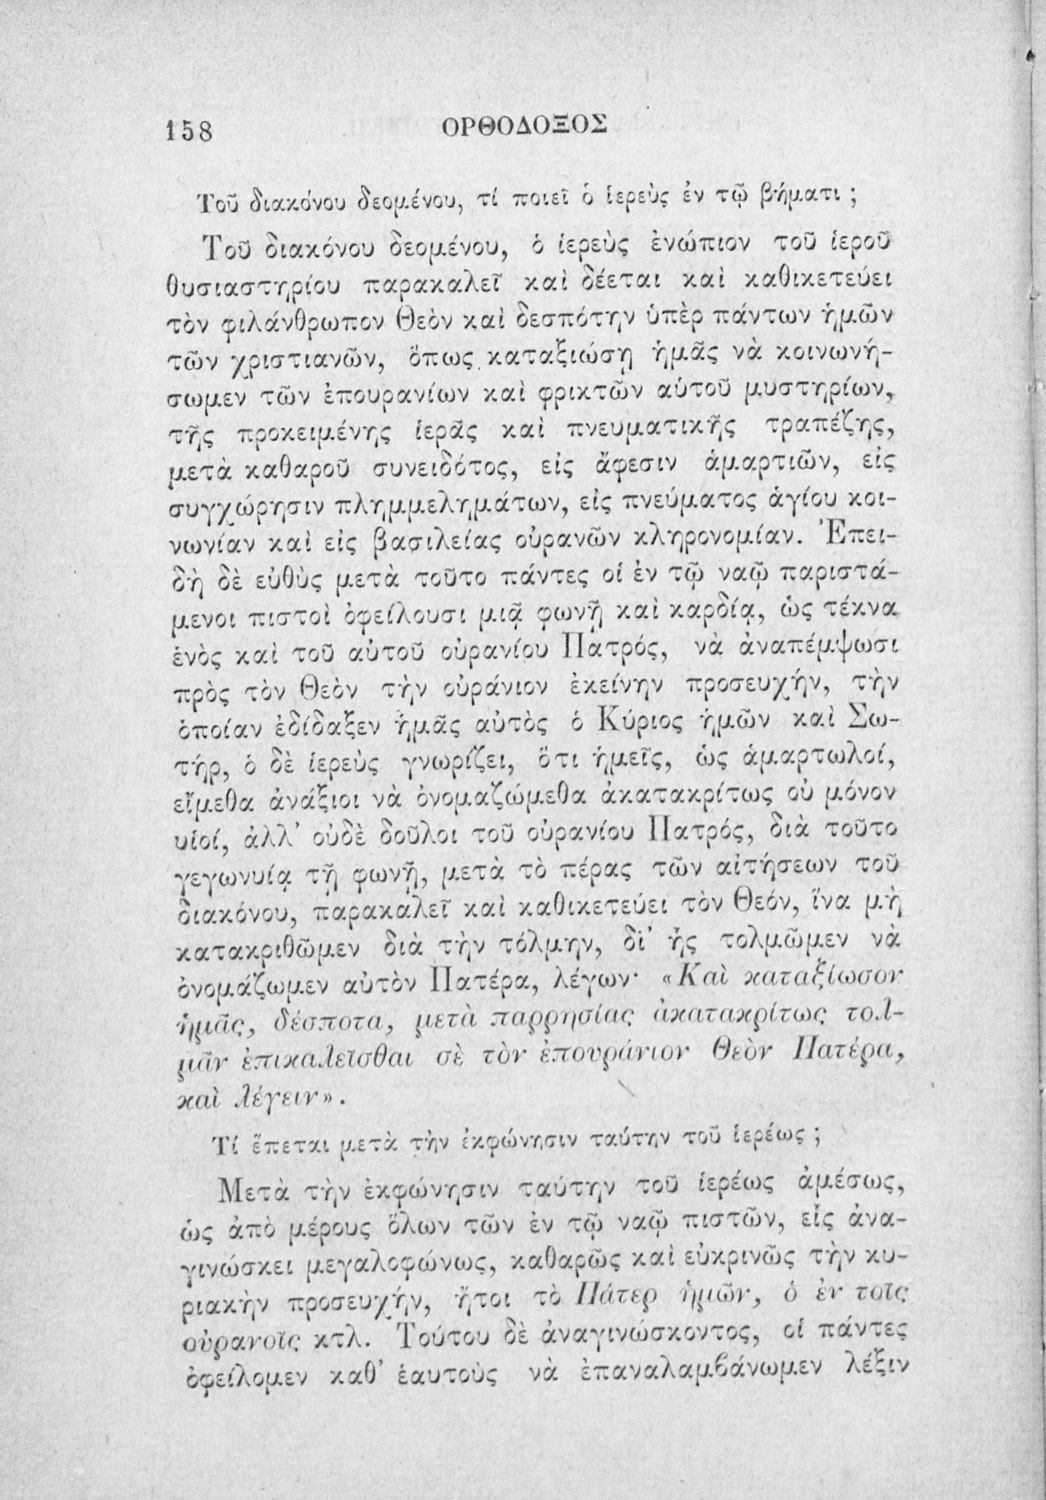 158
ΟΡΘΟΔΟΞΟΣ
Τοῦ διακόνου δεομένου, τί ποιεῖ ὁ ἱερεὺς ἐν τῷ βήματι ;
Τοῦ διακόνου δεομένου, ὁ ἱερεὺς ἐνώπιον τοῦ ἱεροῦ
θυσιαστηρίου παρακαλεῖ καὶ δέεται καὶ καθικετεύει
τὸν φιλάνθρωπον Θεὸν καὶ δεσπότην ὑπὲρ πάντων ἡμῶν
τῶν χριστιανῶν, ὅπως καταξιώσῃ ἡμᾶς νὰ κοινωνή-
σωμεν τῶν ἐπουρανίων καὶ φρικτῶν αὐτοῦ μυστηρίων,
τῆς προκειμένης ἱερᾶς καὶ πνευματικῆς τραπέζης,
μετὰ καθαροῦ συνειδότος, εἰς ἄφεσιν ἁμαρτιῶν, εἰς
συγχώρησιν πλημμελημάτων, εἰς πνεύματος ἁγίου κοι-
νωνίαν καὶ εἰς βασιλείας οὐρανῶν κληρονομίαν. Ἐπει-
δὴ δὲ εὐθὺς μετὰ τοῦτο πάντες οἱ ἐν τῷ ναῷ παριστά-
μενοι πιστοὶ ὀφείλουσι μιᾷ φωνῇ καὶ καρδίᾳ, ὡς τέκνα
ἑνὸς καὶ τοῦ αὐτοῦ οὐρανίου Πατρός, νὰ ἀναπέμψωσι
πρὸς τὸν Θεὸν τὴν οὐράνιον ἐκείνην προσευχήν, τὴν
ὁποίαν ἐδίδαξεν ἡμᾶς αὐτὸς ὁ Κύριος ἡμῶν καὶ Σω-
τήρ, ὁ δὲ ἱερεὺς γνωρίζει, ὅτι ἡμεῖς, ὡς ἁμαρτωλοί,
εἴμεθα ἀνάξιοι νὰ ὀνομαζώμεθα ἀκατακρίτως οὐ μόνον
υἱοί, ἀλλ' οὐδὲ δοῦλοι τοῦ οὐρανίου Πατρός, διὰ τοῦτο
γεγωνυίᾳ τῇ φωνῇ, μετὰ τὸ πέρας τῶν αἰτήσεων τοῦ
διακόνου, παρακαλεῖ καὶ καθικετεύει τὸν Θεόν, ἵνα μὴ
κατακριθῶμεν διὰ τὴν τόλμην, δι' ἧς τολμῶμεν νὰ
ὀνομάζωμεν αὐτὸν Πατέρα, λέγων· «Καὶ καταξίωσον
ἡμᾶς, δέσποτα, μετὰ παρρησίας ἀκατακρίτως τολ-
μᾶν ἐπικαλεῖσθαι σὲ τὸν ἐπουράνιον Θεὸν Πατέρα,
καὶ λέγειν».
Τί ἕπεται μετὰ τὴν ἐκφώνησιν ταύτην τοῦ ἱερέως ;
Μετὰ τὴν ἐκφώνησιν ταύτην τοῦ ἱερέως ἀμέσως,
ὡς ἀπὸ μέρους ὅλων τῶν ἐν τῷ ναῷ πιστῶν, εἷς ἀνα-
γινώσκει μεγαλοφώνως, καθαρῶς καὶ εὐκρινῶς τὴν κυ-
ριακὴν προσευχήν, ἤτοι τὸ Πάτερ ἡμῶν, ὁ ἐν τοῖς
οὐρανοῖς κτλ. Τούτου δὲ ἀναγινώσκοντος, οἱ πάντες
ὀφείλομεν καθ' ἑαυτοὺς νὰ ἐπαναλαμβάνωμεν λέξιν